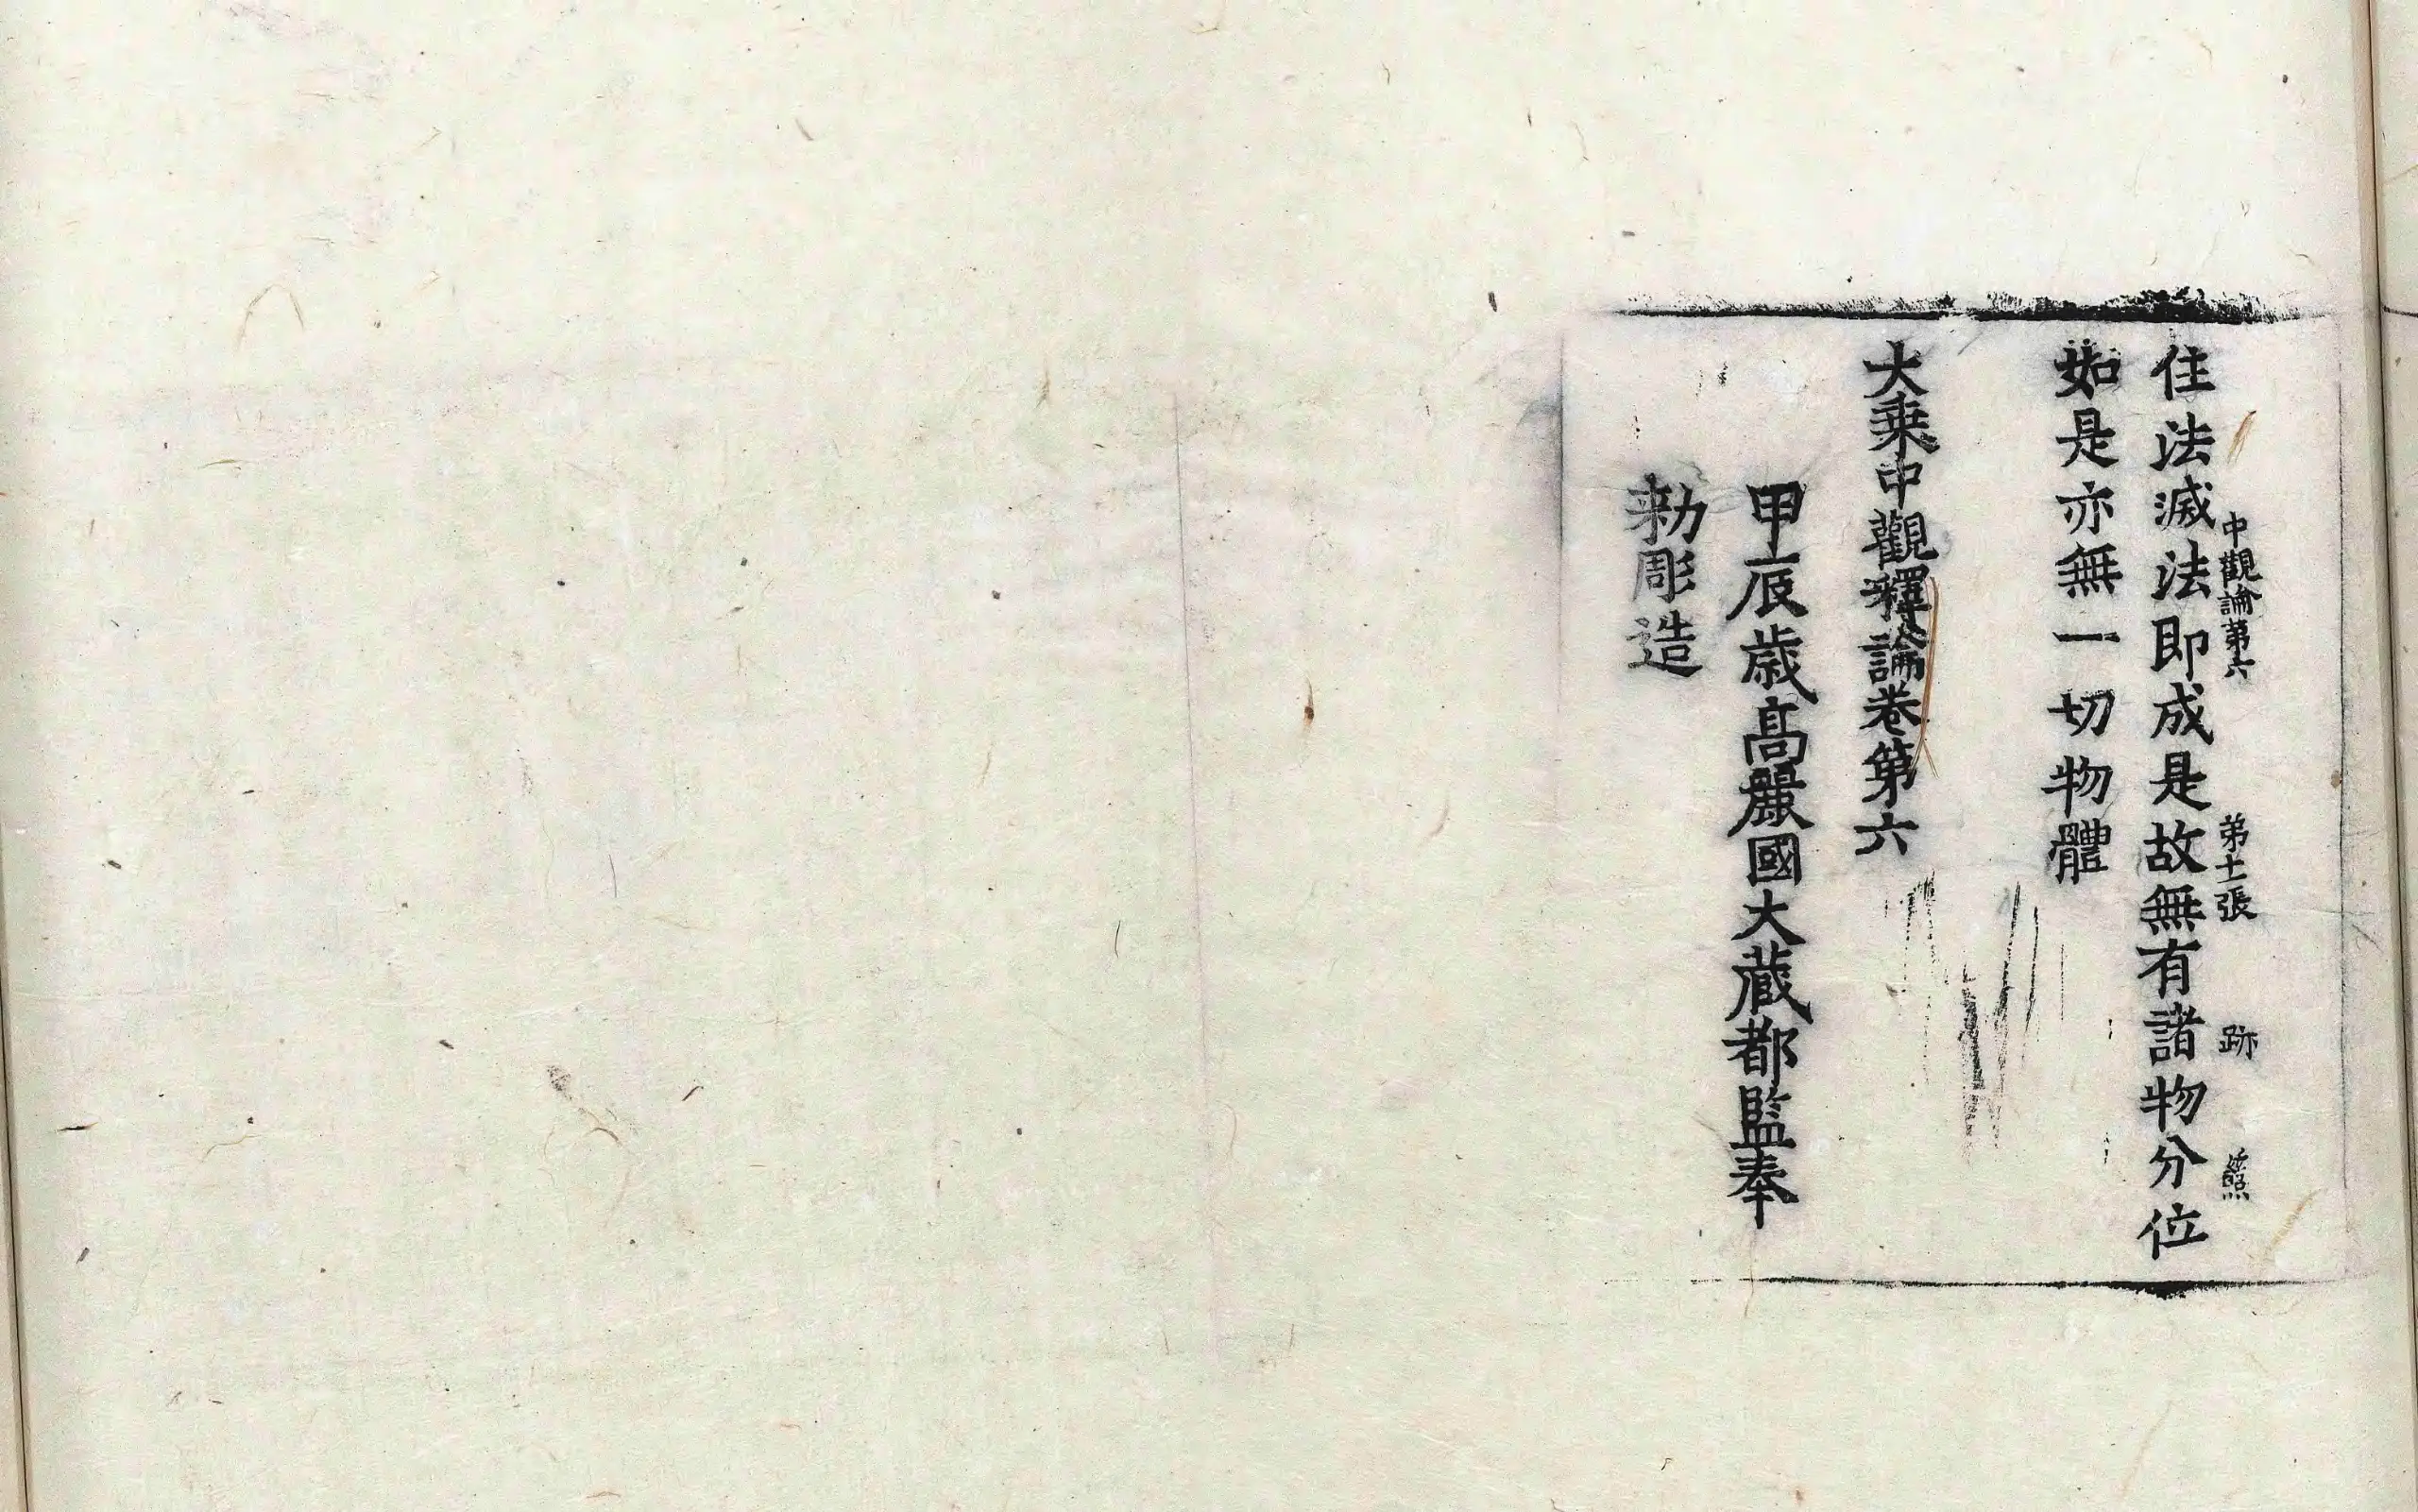 中觀論第六 第十二張 跡
住法滅法即成是故無有諸物分位
如是亦無一切物體
大乗中觀釋論卷第六
甲辰歳高麗國大藏都監奉
勑彫造